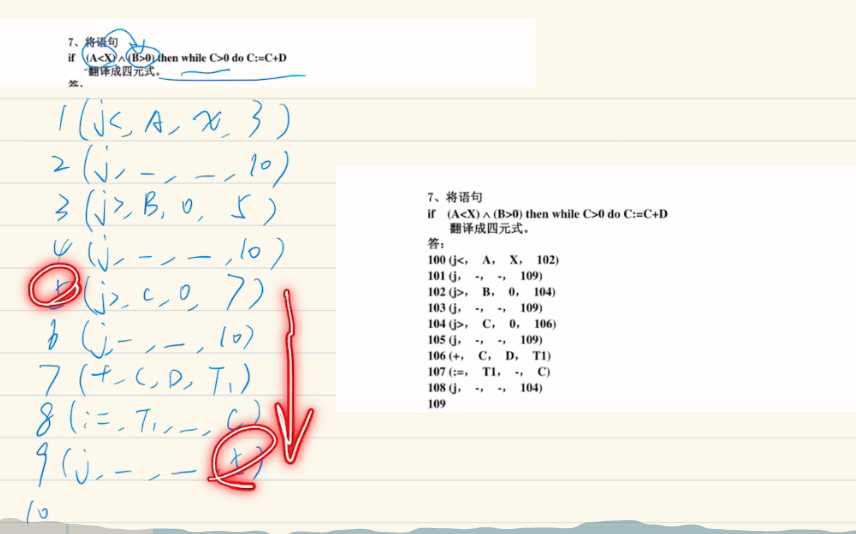 7、将语句
if (A<X)∧(B>0) then while C>0 do C:=C+D
翻译成四元式。
答:
1 (j<, A, X, 3)
2 (j, -, -, 10)
3 (j>, B, 0, 5)
4 (j, -, -, 10)
5 (j>, C, 0, 7)
6 (j, -, -, 10)
7 (+, C, D, T1)
8 (:=, T1, -, C)
9 (j, -, -, 5)
10
7、将语句
if (A<X)∧(B>0) then while C>0 do C:=C+D
翻译成四元式。
答:
100 (j<, A, X, 102)
101 (j, -, -, 109)
102 (j>, B, 0, 104)
103 (j, -, -, 109)
104 (j>, C, 0, 106)
105 (j, -, -, 109)
106 (+, C, D, T1)
107 (:=, T1, -, C)
108 (j, -, -, 104)
109